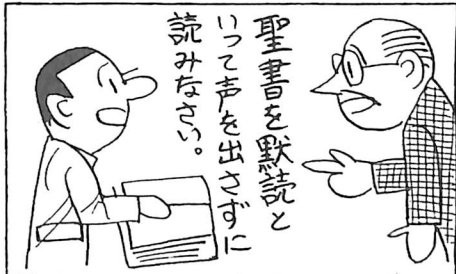 聖書を黙読と
いって声を出さずに
読みなさい。